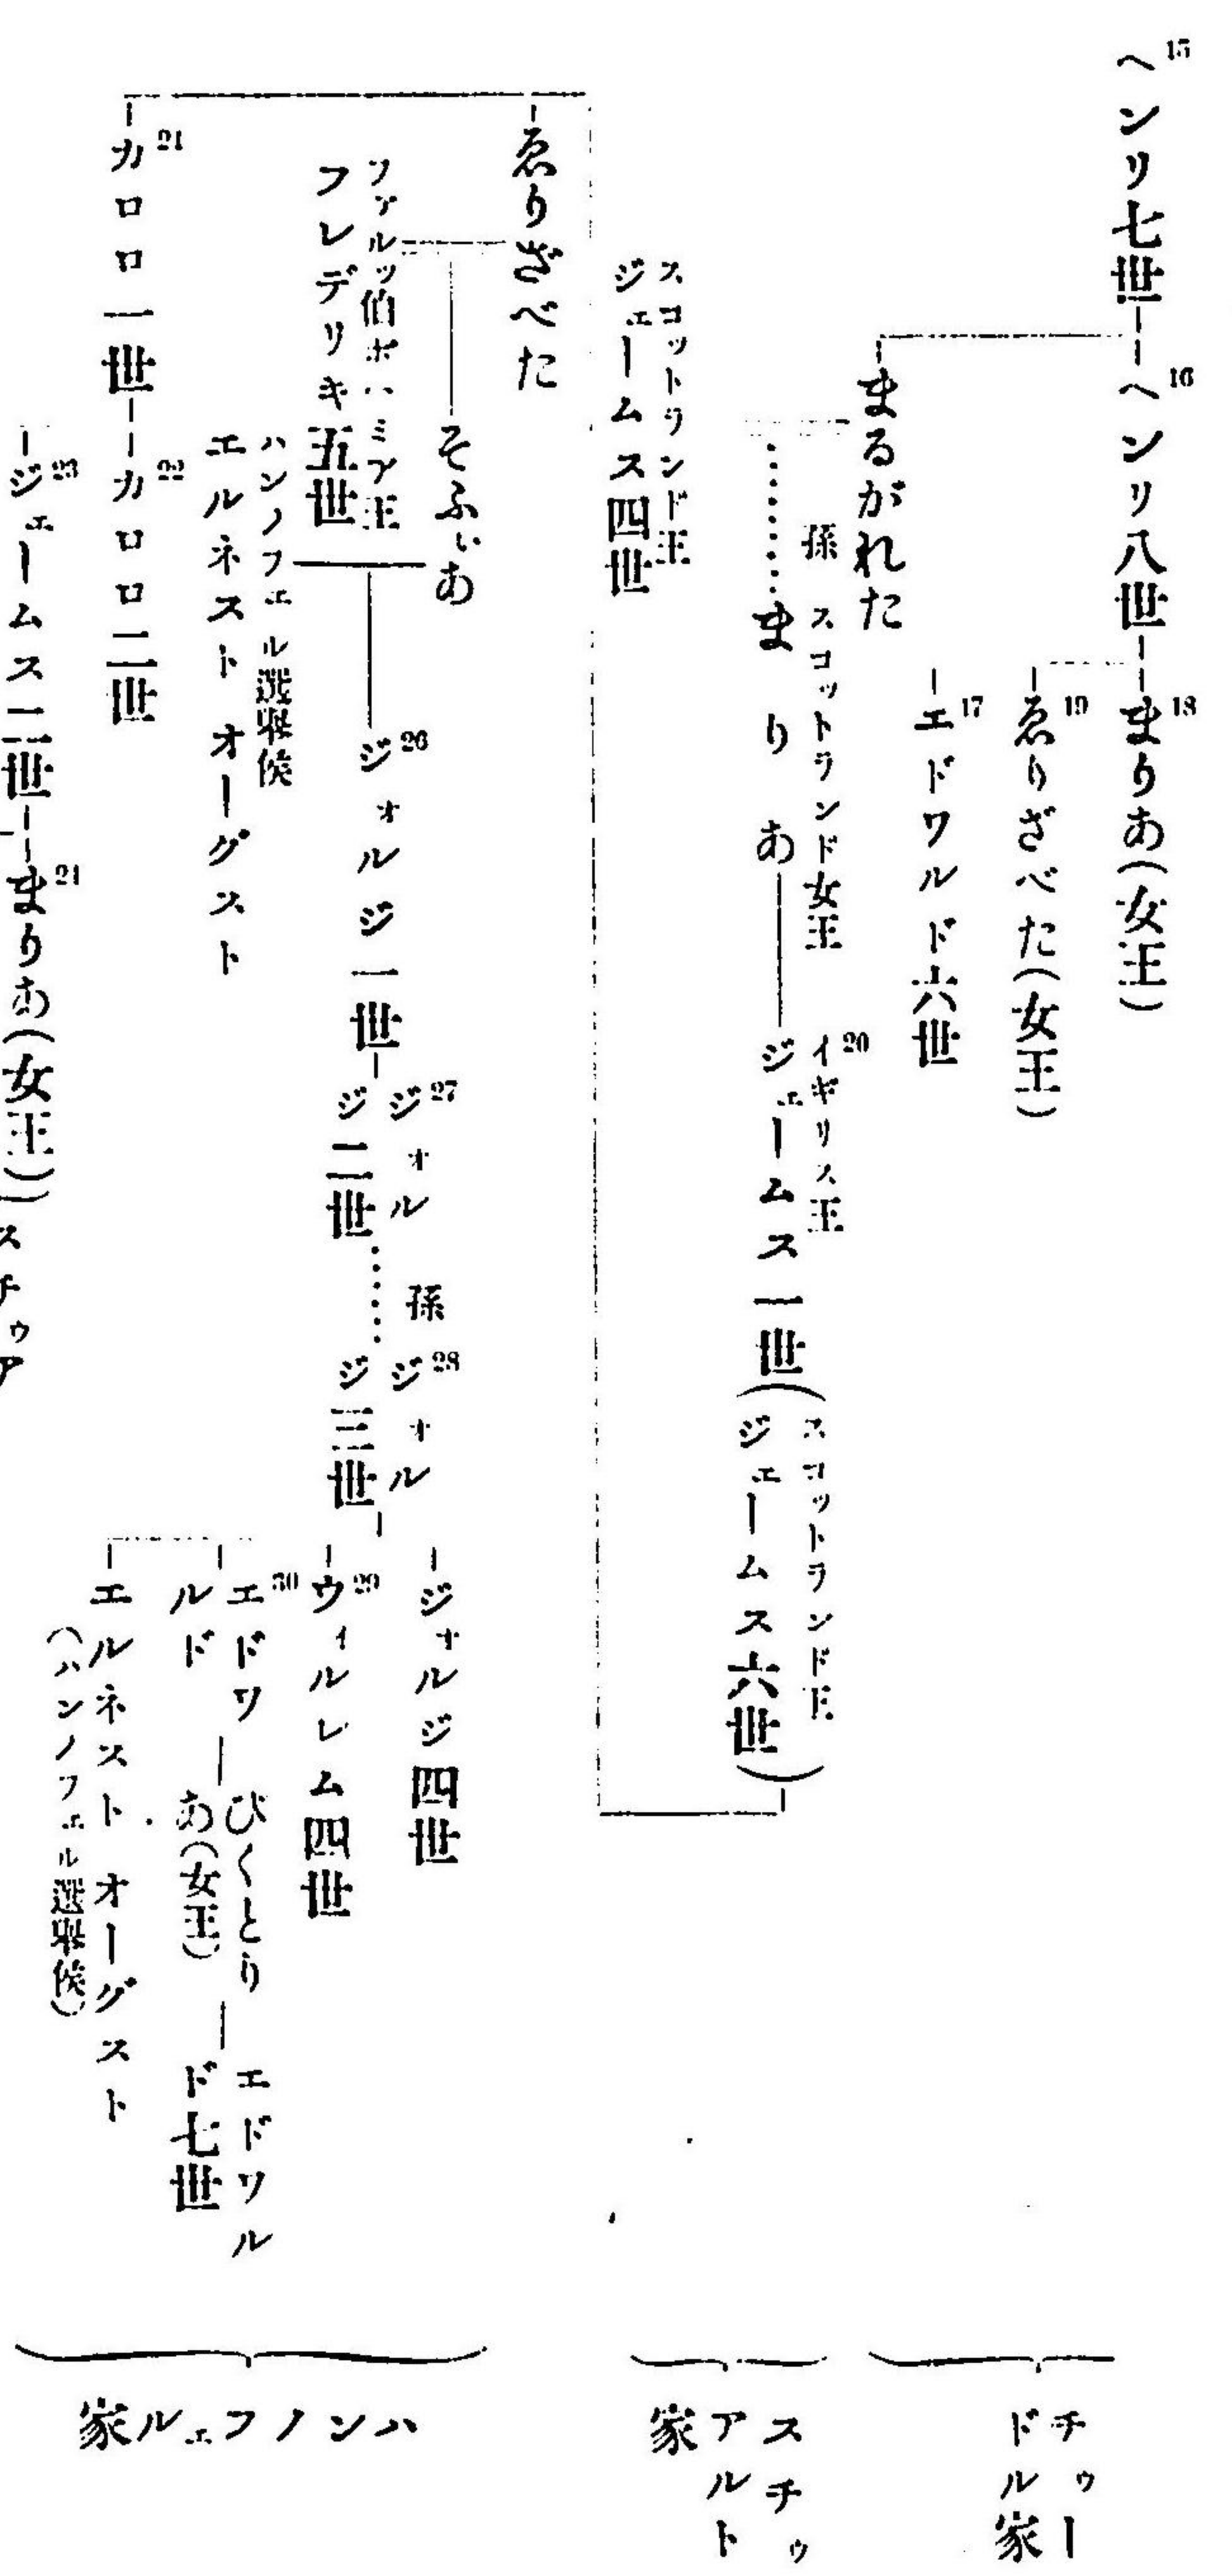 15
ヘンリ七世
16
ヘンリ八世
18
まりあ(女王)
19
ゑりざべた(女王)
17
エドワルド六世
まるがれた
孫 スコットランド女王
まりあ
20
イギリス王
ジェームス一世
スコットランド王
(ジェームス六世)
スコットランド王
ジェームス四世
ゑりざべた
そふぃあ
ファルツ伯ボハミア王
フレデリキ五世
26
ジォルジ一世
27
ジォル
ジ二世
孫
28
ジォル
ジ三世
ジォルジ四世
29
ウィルレム四世
30
エドワ
ルド
びくとり
あ(女王)
エドワル
ド七世
エルネスト オーグスト
(ハンノフェル選擧侯)
ハンノフェル選擧侯
エルネスト オーグスト
21
カロロ一世
22
カロロ二世
23
ジェームス二世
24
まりあ(女王)
スチゥア
チゥー
ドル家
スチゥ
アルト
家
ハンノフェル家